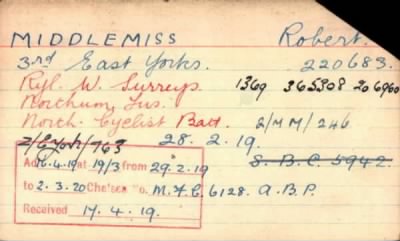 MIDDLEMISS Robert.
3rd East Yorks. 220683.
Ryl. W. Surreys. 1369 365308 206960
Northum. Fus.
North. Cyclist Batt. 2/MM/246
2/E.York/763 28. 2. 19.
Ad 16.4.19 at 19/3 from 29.2.19 S. B. C. 5942.
to 2.3.20 Chelsea No. M.F.C. 6128. A.B.P.
Received 17. 4. 19.